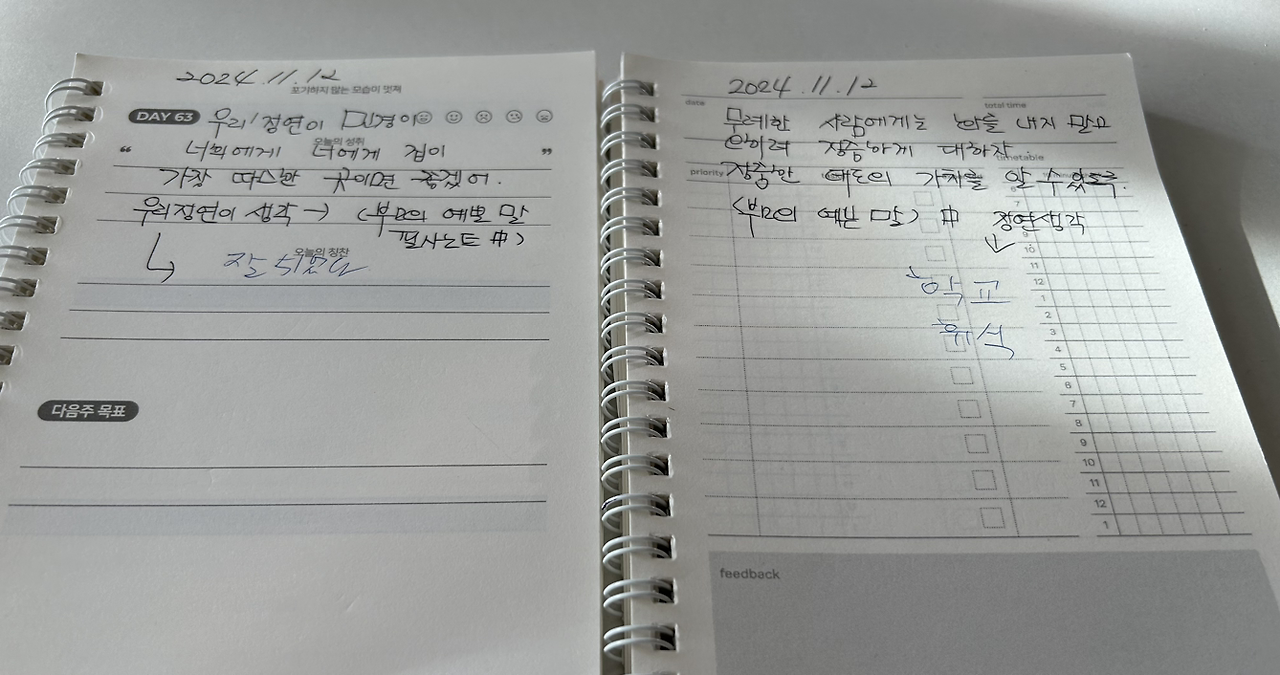 2024.11.12
포기하지 않는 모습이 멋째
DAY 63 우리 정연이 민경이
오늘의 성취
" 너희에게 너에게 집이 "
가장 따스한 곳이면 좋겠어.
우리 정연이 생각→ (부모의 예쁜 말
필사노트 中)
오늘의 칭찬
잘
다음주 목표
2024.11.12
date
total time
무례한 사람에게는 화를 내지 말고
오히려 정중하게 대하자.
timetable
priority 정중한 태도의 가치를 알 수 있도록.
(부모의 예쁜 말) 中 정연생각
학교
휴식
7
9
10
11
12
1
2
3
4
5
6
7
8
9
10
11
12
1
feedback